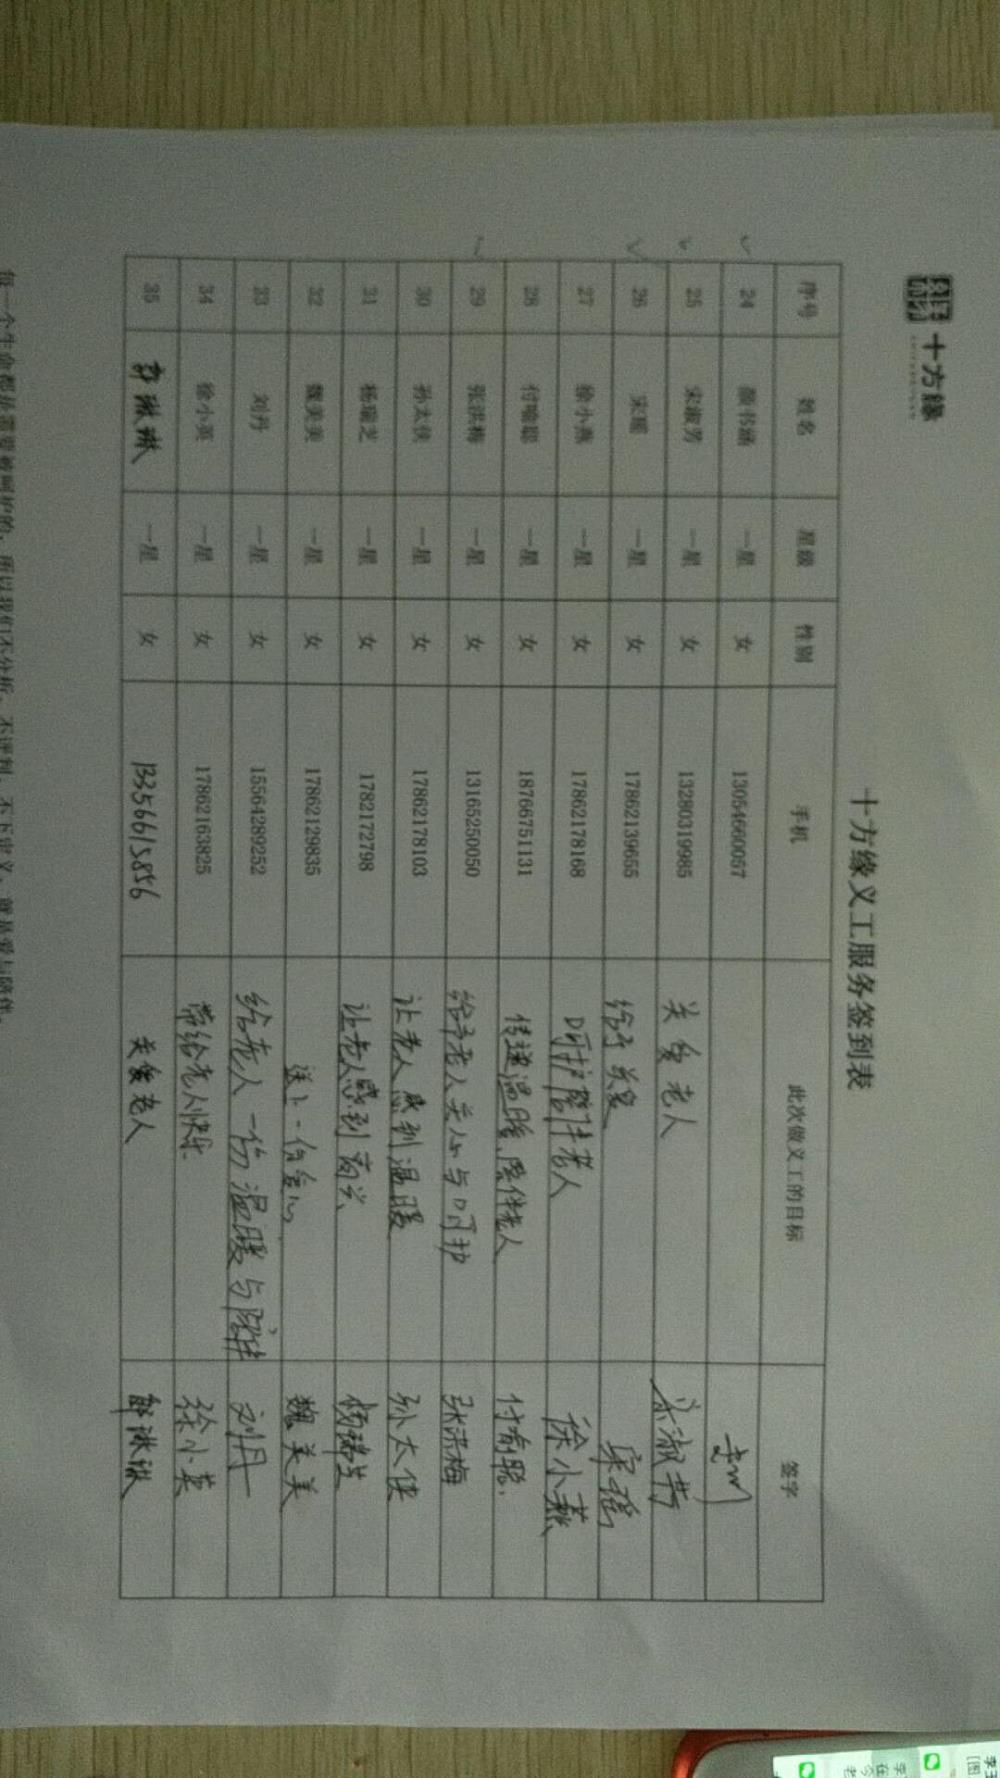 十方缘
十方缘义工服务签到表
序号 姓名 星级 性别 手机 此次做义工的目标 签字
24 颜书涵 一星 女 13054660057
25 宋淑芳 一星 女 13280319985 关爱老人 宋淑芳
26 宋瑶 一星 女 17862139655 给予关爱 宋瑶
27 徐小燕 一星 女 17862178168 呵护陪伴老人 徐小燕
28 付喻聪 一星 女 18766751131 传递温暖、陪伴老人 付喻聪
29 张洪梅 一星 女 13165250050 给予老人关心与呵护 张洪梅
30 孙太侠 一星 女 17862178103 让老人感到温暖 孙太侠
31 杨瑞芝 一星 女 1782172798 让老人感到高兴 杨瑞芝
32 魏美美 一星 女 17862129835 送上一份爱心 魏美美
33 刘丹 一星 女 15564289252 给老人一份温暖与陪伴 刘丹
34 徐小英 一星 女 17862163825 带给老人快乐 徐小英
35 一星 女 13356615856 关爱老人
每一个生命都是需要被呵护的，所以我们不分析、不评判、不下定义，就是爱与陪伴。